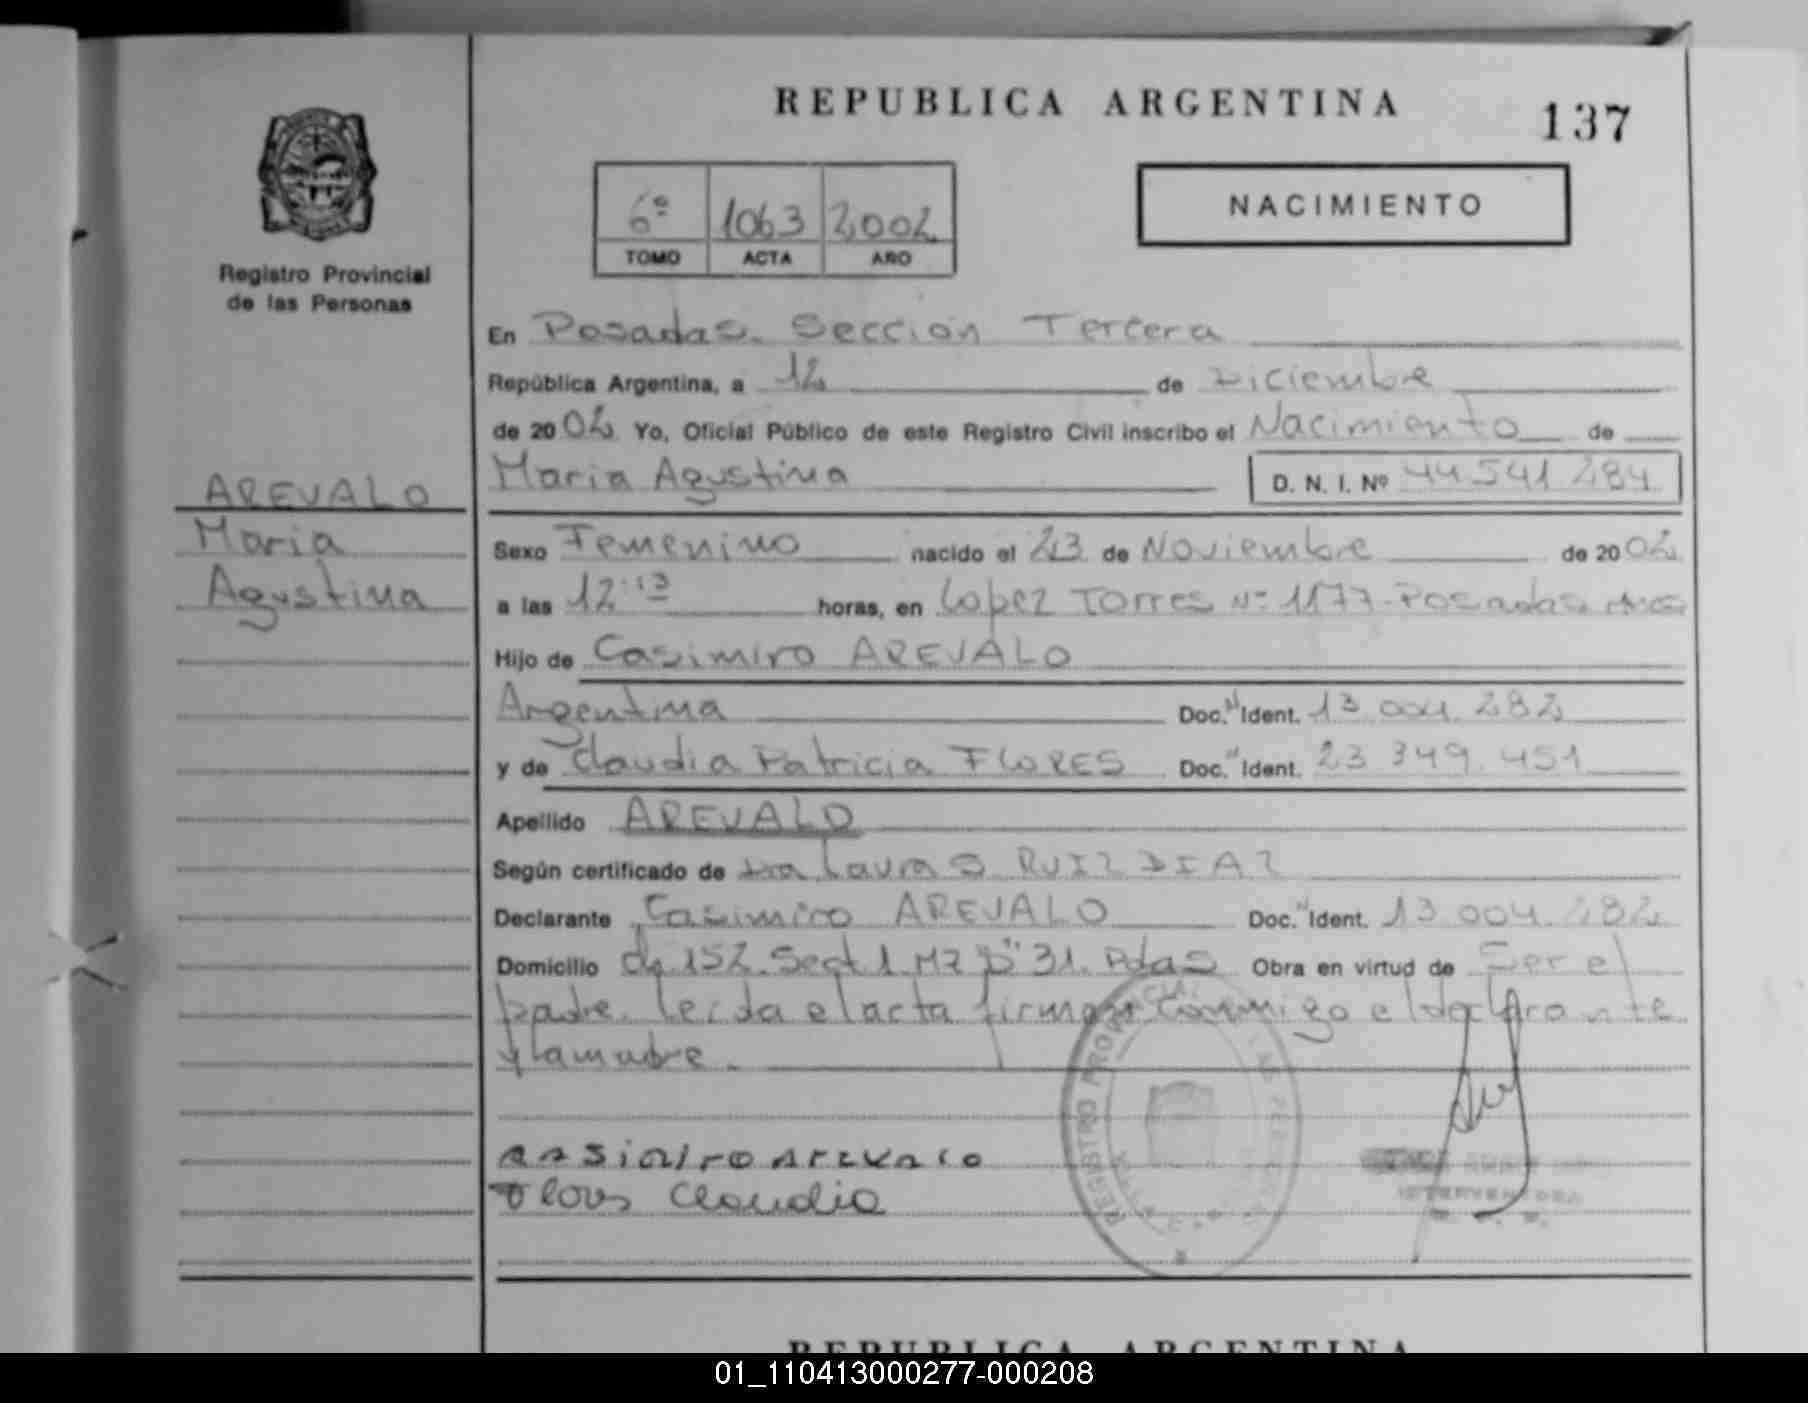 REPUBLICA ARGENTINA
137
NACIMIENTO
6º 1063 2002
TOMO ACTA AÑO
Registro Provincial
de las Personas
AREVALO
Maria
Agustina
En Posadas. Sección Tercera
República Argentina, a 12 de Diciembre
de 2002 Yo, Oficial Público de este Registro Civil inscribo el Nacimiento de
Maria Agustina D. N. I. Nº 44 541 284
Sexo Femenino nacido el 23 de Noviembre de 2002
a las 12:13 horas, en Lopez Torres Nº 1177-Posadas
Hijo de Casimiro AREVALO
Argentina Doc. Ident. 13.004.282
y de Claudia Patricia FLORES Doc. Ident. 23 349.451
Apellido AREVALO
Según certificado de Dra Laura S RUIZ DIAZ
Declarante Casimiro AREVALO Doc. Ident. 13 004.282
Domicilio Ch 152. Sect 1 Mz 31. Pdas Obra en virtud de Ser el
padre. leida el acta firman conmigo el declarante
y la madre.
CASIMIRO AREVALO
Flores Claudia
REGISTRO PROVINCIAL DE LAS PERSONAS
INTERVENTORA
REPUBLICA ARGENTINA
01_110413000277-000208